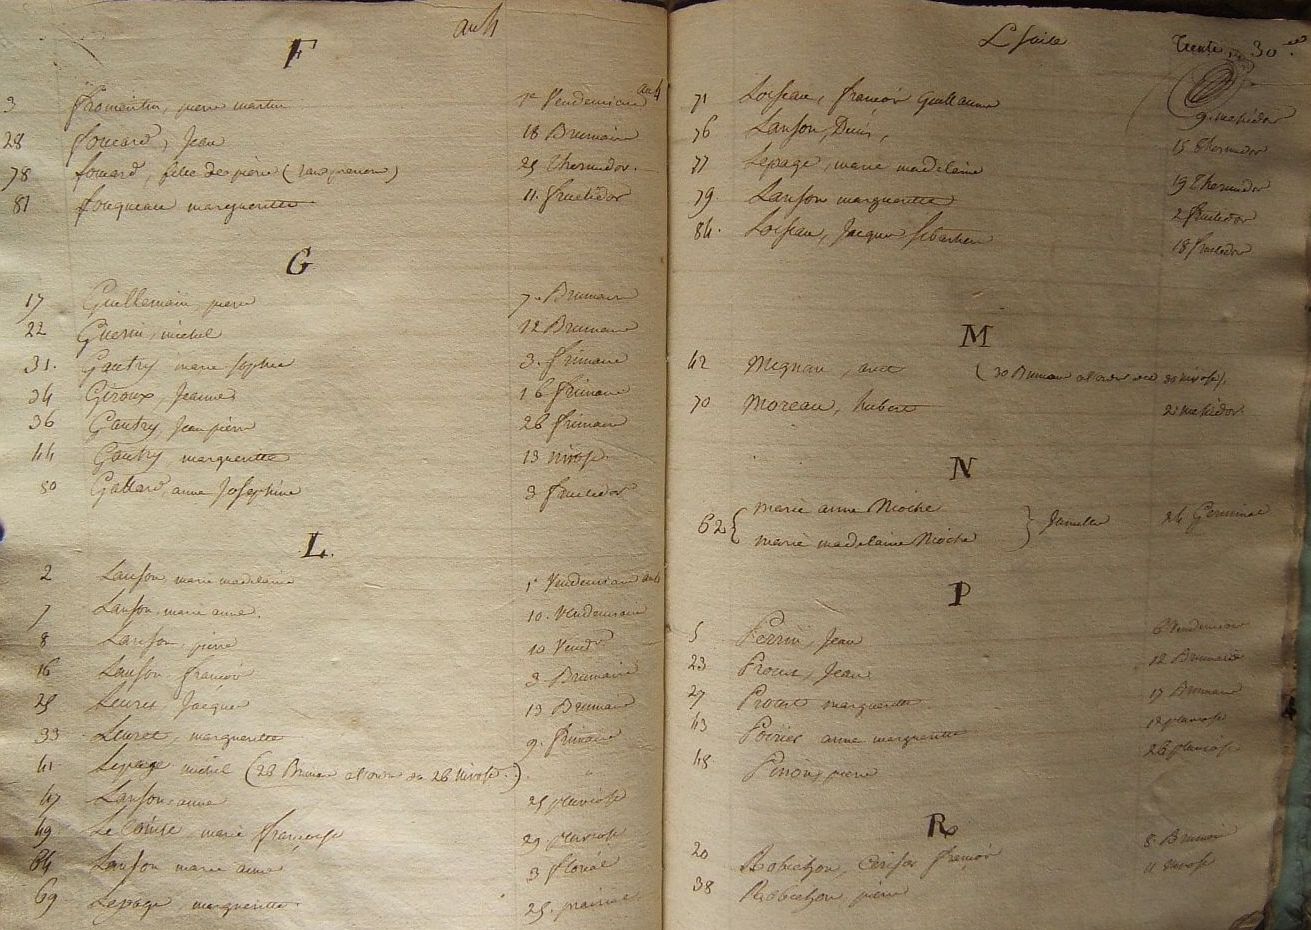 an 4
F
3 fromentin, pierre martin 1er Vendemiaire an 4
28 foucard, Jean 18 Brumaire
78 foucard, fille de pierre (sans prenom) 25 Thermidor.
81 fouqueau marguerite 11. fructidor
G
17 Guillemain, pierre 7. Brumaire
22 Guerin, michel 12 Brumaire
31. Gautry, marie sophie 3. frimaire
34 Giroux, Jeanne 16 frimaire
36 Gautry, Jean pierre 26 frimaire
44 Gautry, marguerite 13 nivose.
80 Gallard, anne Josephine 3 fructidor
L.
2 Lanson, marie madelaine 1er Vendemiaire an 4
7 Lanson, marie anne. 10. Vendemiaire
8 Lanson, pierre 10 Vendre
16 Lanson, françois 3 Brumaire
25 Leuret, Jacques 13 Brumaire
33 Leuret, marguerite 9. frimaire
41 Lepage michel (28 Brumaire du 26 Nivose.)
47 Lanson, anne 25 pluviose
49 Le Comte, marie françoise 29 pluviose
64 Lanson marie anne 3 floréal
69 Lepage, marguerite. 25. prairial
L Suite
trente 30
71 Loiseau, françois Guillaume 9. messidor
76 Lanson, Denis, 15 Thermidor
77 Lepage, marie madelaine 19 Thermidor
79. Lanson marguerite 2 fructidor
84. Loiseau, Jacques Sebastien 18 fructidor
M
42 Mignan, (30 Brumaire 30 nivose).
70 Moreau, hubert 2 messidor.
N
62 { marie anne Nioche
marie madelaine Nioche } Jumelles 24 Germinal
P
5 Perrin, Jean 6 Vendemiaire
23 Proust, Jean 12 Brumaire
27 Proust marguerite 17 Brumaire
43 Poirier anne marguerite 12 pluviose
48 Pinon, pierre 26 pluviose
R
20 Robichon, françois 8. Brumaire
38 Robichon pierre 11 nivose